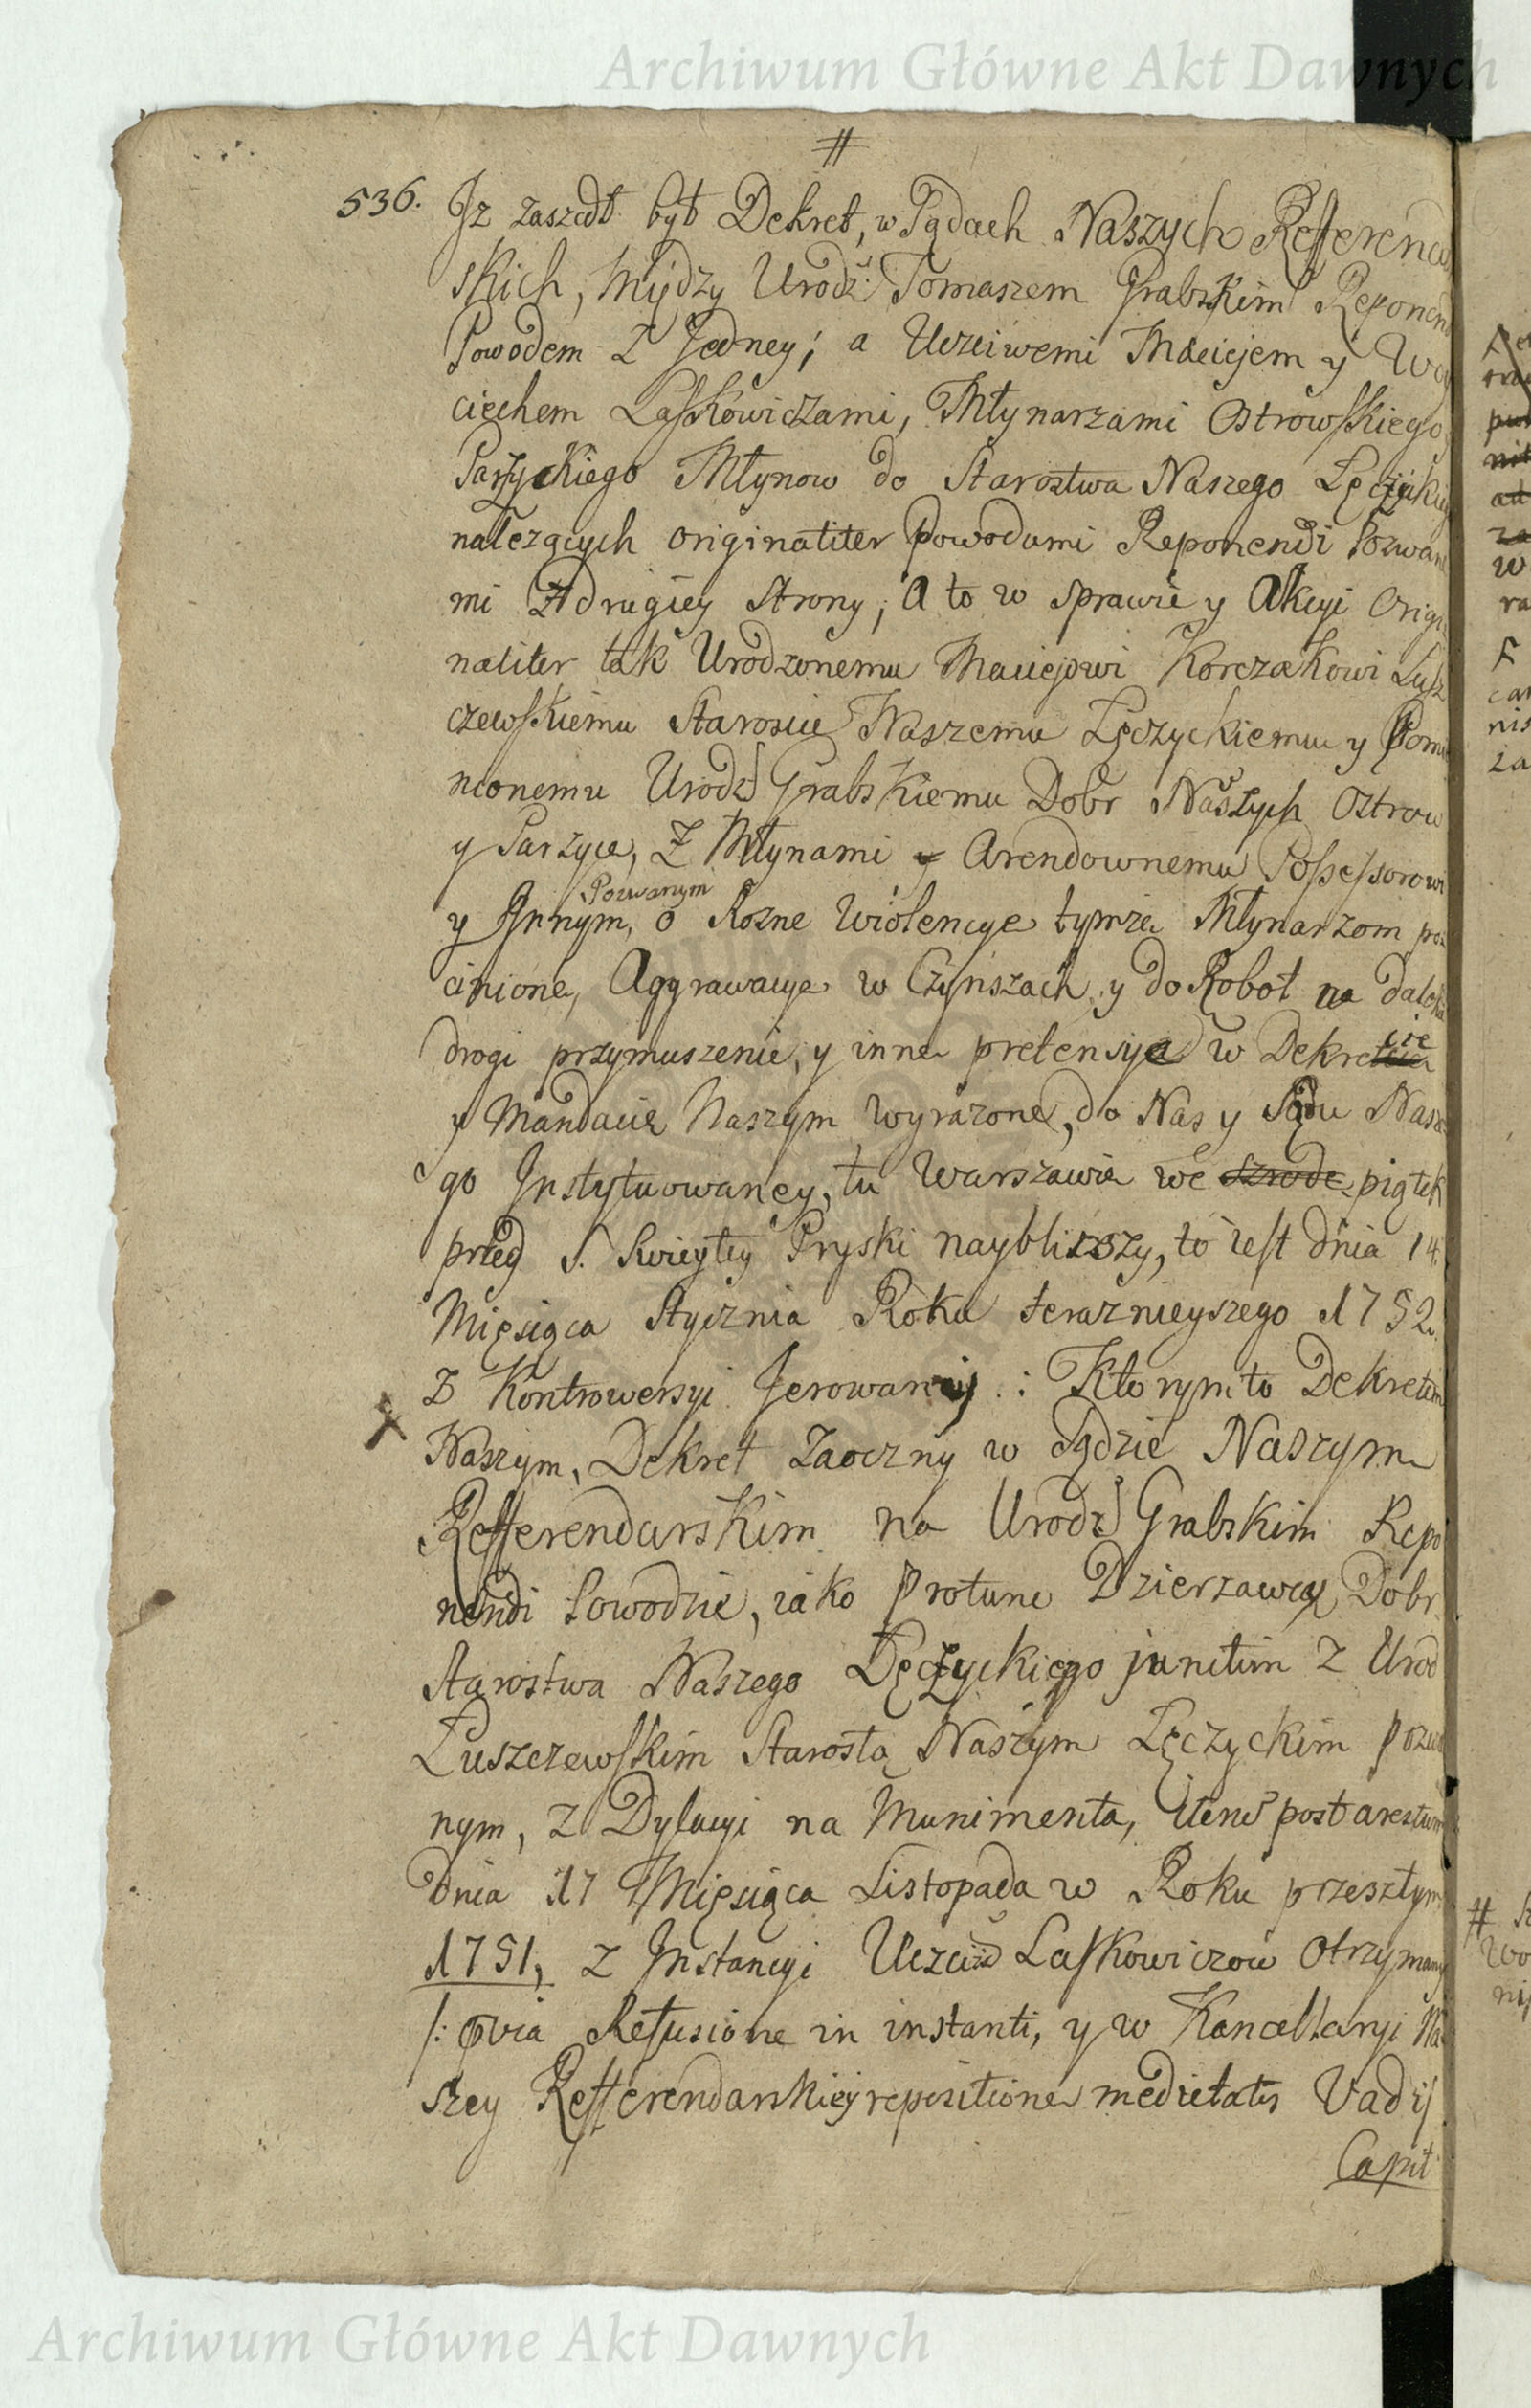 Archiwum Główne Akt Dawnych
#
536. Iz zaszedł był Dekret, w Sądach Naszych Refferendar
skich, między Urodz: Tomaszem Grabskim Reponendi
Powodem z Jedney; a Uczciwemi Maciejem y Woy
ciechem Laskowiczami, Młynarzami Ostrowskiego,
Parzyckiego Młynow do Starostwa Naszego Łęczyckiego
nalezących originaliter Powodami Reponendi Pozwany
mi z drugiey Strony; a to w sprawie y Akcyi Origi
naliter tak Urodzonemu Maciejowi Korczakowi Lusz
czewskiemu Staroscie Naszemu Łęczyckiemu y Pomie
nionemu Urodz Grabskiemu Dobr Naszych Ostrow
y Parzyce, z Młynami y Arendownemu Possessorowi
Pozwanym
y Innym, o Rozne Wiolencye tymze Młynarzom po
cinione, Aggrawacye w Czynszach y do Robot na dalekie
drogi przymuszenie, y inne pretensye w Dekrecie
y Mandacie Naszym wyrazone, do Nas y Sądu Nasze
go Instytuowaney, tu Warszawie we szrode piątek
przed S. Swiętey Pryski naybliszszy, to iest dnia 14.
Miesiąca Stycznia Roku teraznieyszego 1752.
z Kontrowersyi ferowany .: Ktorym to Dekretem
X
Naszym, Dekret Zaoczny w Sądzie Naszym
Refferendarskim na Urodz Grabskim Repo
nendi Powodzie, iako protunc Dzierzawcy Dobr
Starostwa Naszego Łęczyckiego junctim z Urod
Luszczewskim Starostą Naszym Łęczyckim pozwa
nym, z Dylacyi na Munimenta, item post arestum
dnia 17 Miesiąca Listopada w Roku przeszłym
1751, z Instancyi Uczciw Laskowiczow otrzymany
/: qvia Refusione in instanti, y w Kancellaryi Na
szey Refferendarskiey repositione medietatis Vadij
Capit
Archiwum Główne Akt Dawnych